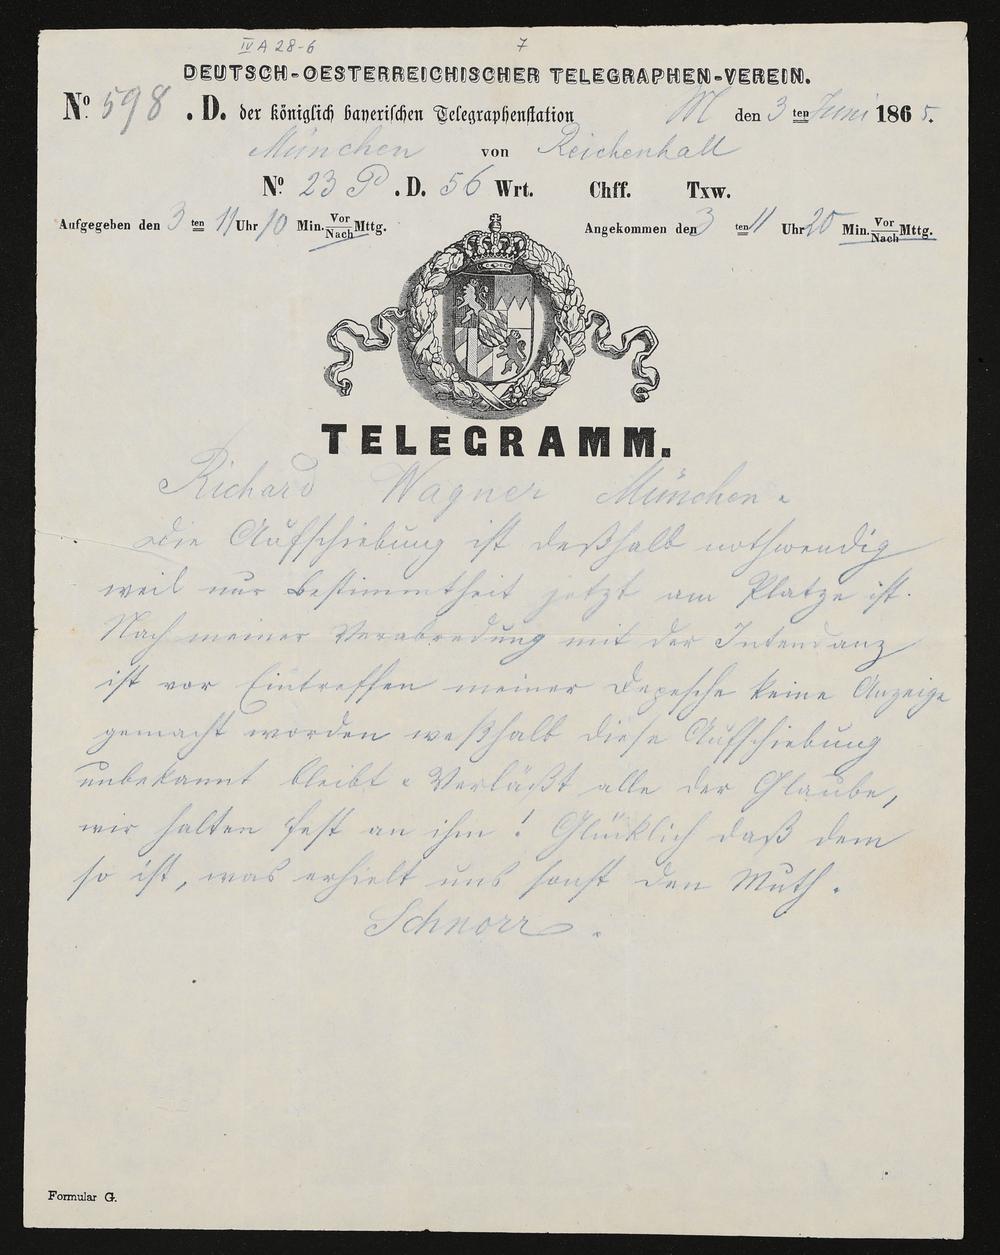 IV A 28-6 7
DEUTSCH-OESTERREICHISCHER TELEGRAPHEN-VEREIN.
No. 598 . D. der königlich bayerischen Telegraphenstation M den 3 ten Juni 1865.
München von Reichenhall
No. 23 P . D. 56 Wrt. Chff. Txw.
Aufgegeben den 3 ten 11 Uhr 10 Min. Vor/Nach Mttg. Angekommen den 3 ten 11 Uhr 20 Min. Vor/Nach Mttg.
TELEGRAMM.
Richard Wagner München.
Die Aufschiebung ist deßhalb nothwendig
weil nur Bestimmtheit jetzt am Platze ist.
Nach meiner Verabredung mit der Intendanz
ist vor Eintreffen meiner Depesche keine Anzeige
gemacht worden weßhalb diese Aufschiebung
unbekannt bleibt. Verläßt alle der Glaube,
wir halten fest an ihm! Glücklich daß dem
so ist, was erhielt uns sonst den Muth.
Schnorr.
Formular G.